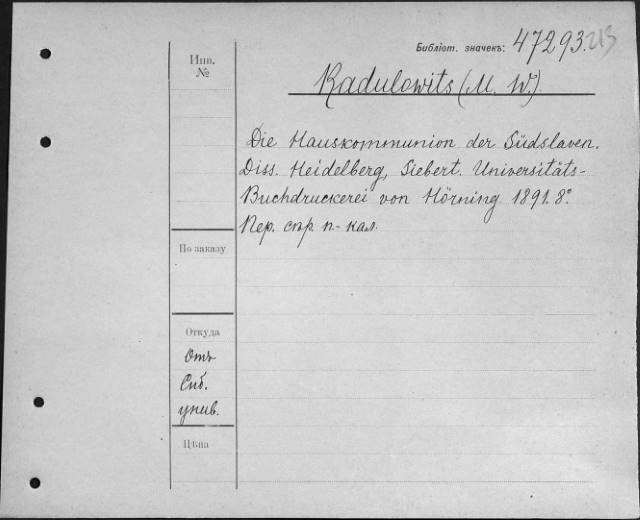 Библіот. значекъ: 47293.
Инв.
№
Radulowits (M. W.)
Die Hauskommunion der Südslaven.
Diss. Heidelberg, Siebert. Universitäts-
Buchdruckerei von Hörning 1891. 8º
Пер. стр п-кал.
По заказу
Откуда
Отъ
Спб.
унив.
Цѣна